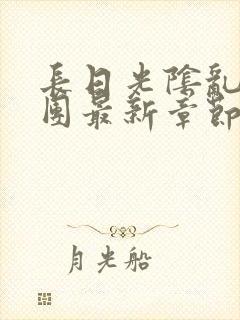 長日光陰亂
團最新章節
月光船